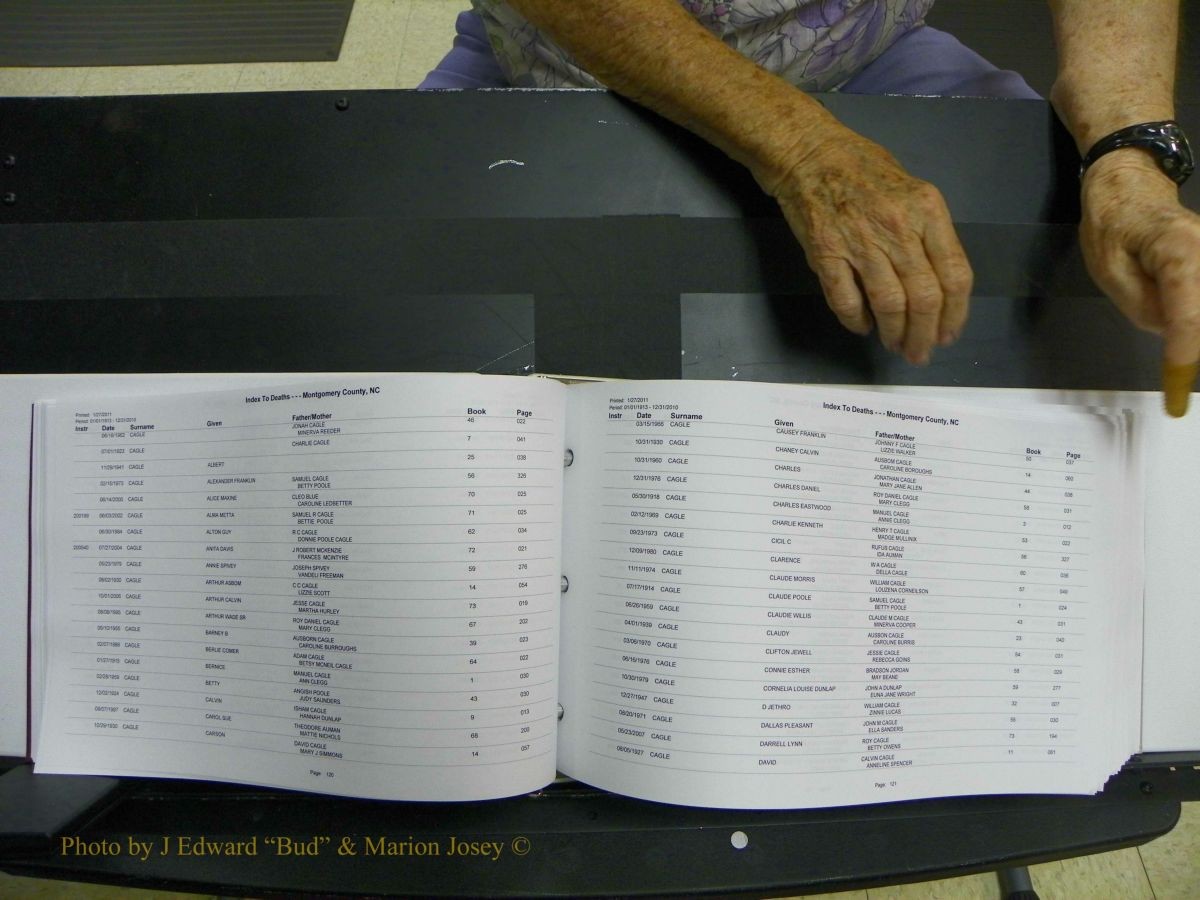 Index To Deaths - - - Montgomery County, NC
Printed: 1/27/2011
Period: 01/01/1913 - 12/31/2010
Instr Date Surname Given Father/Mother Book Page
06/18/1962 CAGLE JONAH CAGLE 46 022
MINERVA REEDER
07/01/1923 CAGLE CHARLIE CAGLE 7 041
11/29/1941 CAGLE ALBERT 25 038
02/15/1973 CAGLE ALEXANDER FRANKLIN SAMUEL CAGLE 56 326
BETTY POOLE
06/14/2000 CAGLE ALICE MAXINE CLEO BLUE 70 025
CAROLINE LEDBETTER
200199 06/03/2002 CAGLE ALMA METTA SAMUEL R CAGLE 71 025
BETTIE POOLE
06/30/1984 CAGLE ALTON GUY R C CAGLE 62 034
DONNIE POOLE CAGLE
200540 07/27/2004 CAGLE ANITA DAVIS J ROBERT MCKENZIE 72 021
FRANCES MCINTYRE
05/23/1979 CAGLE ANNIE SPIVEY JOSEPH SPIVEY 59 276
VANDELI FREEMAN
08/02/1930 CAGLE ARTHUR ASBOM C C CAGLE 14 054
LIZZIE SCOTT
10/01/2006 CAGLE ARTHUR CALVIN JESSE CAGLE 73 019
MARTHA HURLEY
CAGLE ARTHUR WADE SR ROY DANIEL CAGLE 67 202
MARY CLEGG
05/10/1955 CAGLE BARNEY B AUSBORN CAGLE 39 023
CAROLINE BURROUGHS
02/07/1988 CAGLE BERLIE COMER ADAM CAGLE 64 022
BETSY MCNEIL CAGLE
01/27/1915 CAGLE BERNICE MANUEL CAGLE 1 030
ANN CLEGG
02/28/1959 CAGLE BETTY ANGISH POOLE 43 030
JUDY SAUNDERS
12/02/1924 CAGLE CALVIN ISHAM CAGLE 9 013
HANNAH DUNLAP
09/07/1997 CAGLE CAROL SUE THEODORE AUMAN 68 200
MATTIE NICHOLS
10/29/1930 CAGLE CARSON DAVID CAGLE 14 057
MARY J SIMMONS
Page 120
Index To Deaths - - - Montgomery County, NC
Printed: 1/27/2011
Period: 01/01/1913 - 12/31/2010
Instr Date Surname Given Father/Mother Book Page
03/15/1966 CAGLE CAUSEY FRANKLIN JOHNNY F CAGLE 50 037
LIZZIE WALKER
10/31/1930 CAGLE CHANEY CALVIN AUSBOM CAGLE 14 060
CAROLINE BOROUGHS
10/31/1960 CAGLE CHARLES JONATHAN CAGLE 44 038
MARY JANE ALLEN
12/31/1976 CAGLE CHARLES DANIEL ROY DANIEL CAGLE 58 031
MARY CLEGG
05/30/1918 CAGLE CHARLES EASTWOOD MANUEL CAGLE 3 012
ANNIE CLEGG
02/12/1969 CAGLE CHARLIE KENNETH HENRY T CAGLE 53 022
MADGE MULLINIX
09/23/1973 CAGLE CICIL C RUFUS CAGLE 56 327
IDA AUMAN
12/09/1980 CAGLE CLARENCE W A CAGLE 60 036
DELLA CAGLE
11/11/1974 CAGLE CLAUDE MORRIS WILLIAM CAGLE 57 049
LOUZENA CORNEILSON
07/17/1914 CAGLE CLAUDE POOLE SAMUEL CAGLE 1 024
BETTY POOLE
06/26/1959 CAGLE CLAUDIE WILLIS CLAUDE M CAGLE 43 031
MINERVA COOPER
04/01/1939 CAGLE CLAUDY AUSBON CAGLE 23 040
CAROLINE BURRIS
03/06/1970 CAGLE CLIFTON JEWELL JESSIE CAGLE 54 031
REBECCA GOINS
06/16/1976 CAGLE CONNIE ESTHER BRADSON JORDAN 58 029
MAY BEANE
10/30/1979 CAGLE CORNELIA LOUISE DUNLAP JOHN A DUNLAP 59 277
EUNA JANE WRIGHT
12/27/1947 CAGLE D JETHRO WILLIAM CAGLE 32 007
ZINNIE LUCAS
08/20/1971 CAGLE DALLAS PLEASANT JOHN M CAGLE 55 030
ELLA SANDERS
05/23/2007 CAGLE DARRELL LYNN ROY CAGLE 73 194
BETTY OWENS
06/05/1927 CAGLE DAVID CALVIN CAGLE 11 051
ANNELINE SPENCER
Page 121
Photo by J Edward “Bud” & Marion Josey ©